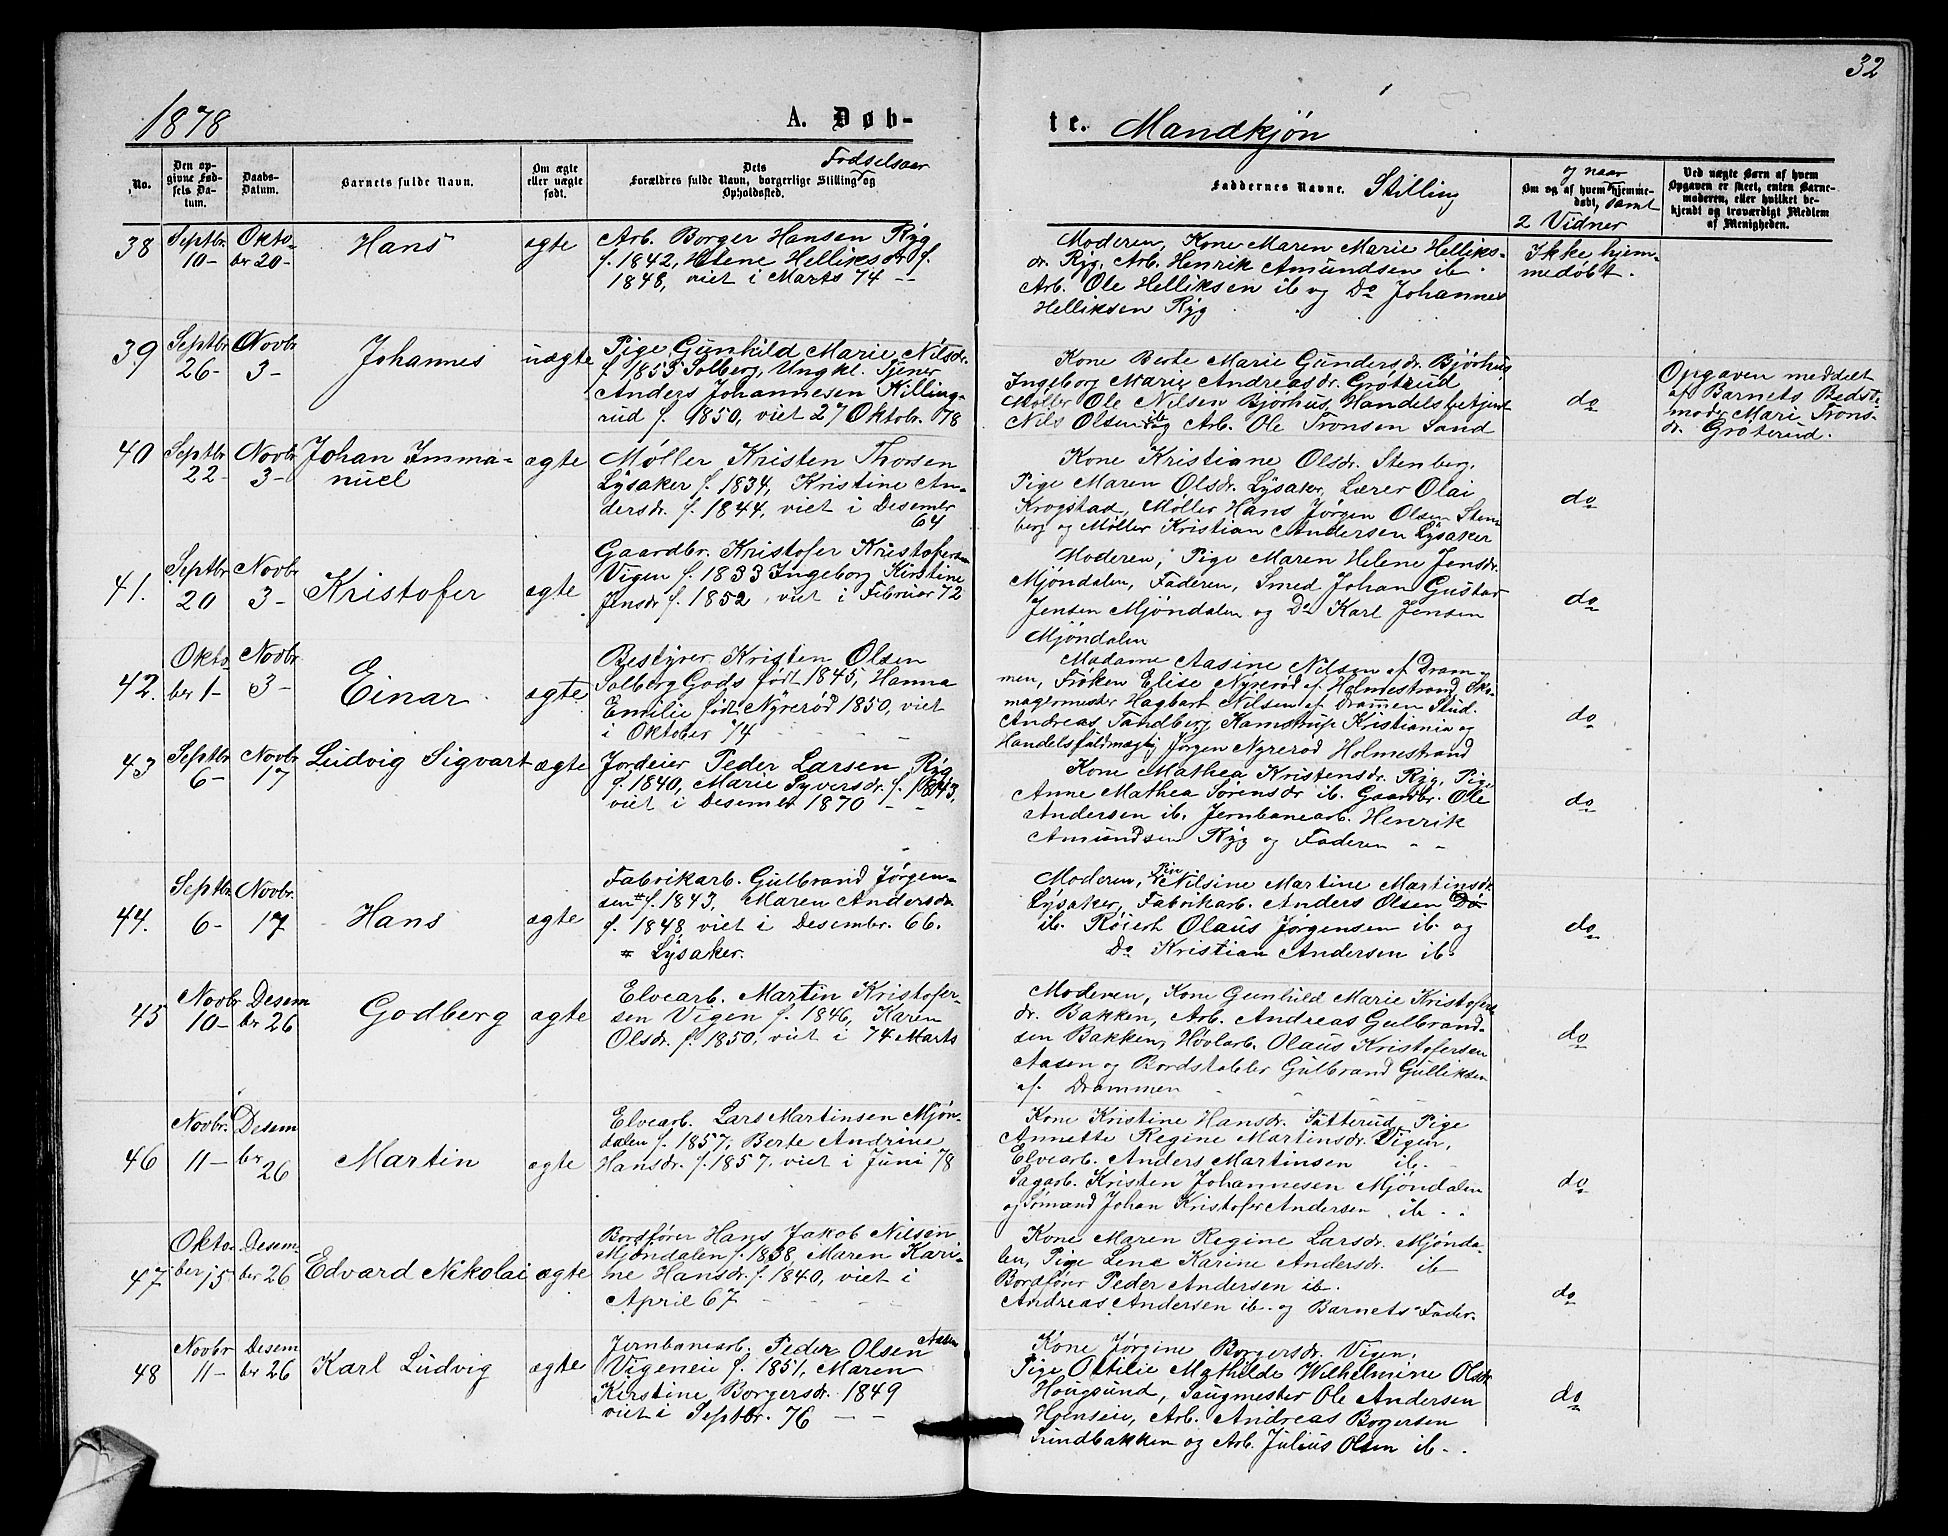 32
1878
A. Døb-
te. Mandkjøn
No.
Den op-
givne Fød-
sels Da-
tum.
Daabs-
Datum.
Barnets fulde Navn.
Om ægte
eller uægte
født.
Dets Fødselsaar
Forældres fulde Navn, borgerlige Stilling og
Opholdssted.
Faddernes Navne. Stilling
og naar
Om og af hvem hjemme-
døbt, samt
2 Vidner
Ved uægte Børn af hvem
Opgaven er skeet, enten Barne-
moderen, eller hvilket be-
kjendt og troværdigt Medlem
af Menigheden.
38
Septbr.
10-
Okto-
ber 20-
Hans
ægte
Arb. Borger Hansen Ryg
f. 1842, Helene Helliksdr. f.
1848, viet i Marts 74 --
Moderen, Kone Maren Marie Helliks-
dr. Ryg, Arb. Henrik Amundsen ib.
Arb. Ole Helliksen ib og Do Johannes
Helliksen Ryg
Ikke hjem-
medøbt.
39
Septbr.
26-
Novbr.
3-
Johannes
uægte
Pige Gunhild Marie Nilsdr.
f. 1853 Solberg, Ungkl. Tjener
Anders Johannesen Killing-
rud f. 1850, viet 27 Oktobr. 78
Kone Berte Marie Gundersdr. Bjørhus
Ingeborg Marie Andreasdr. Grøterud,
Møller Ole Nilsen Bjørhus, Handelsbetjent
Nils Olsen ib og Arb. Ole Tronsen Sand
do
Opgaven meddelt
af Barnets Bedste
modr. Mari Trons-
dr. Grøterud.
40
Septbr.
22-
Novbr.
3-
Johan Imma-
nuel
ægte
Møller Kristen Thorsen
Lysaker f. 1834, Kristine An-
dersdr. f. 1844, viet i Desembr
64
Kone Kristiane Olsdr. Stenberg,
Pige Maren Olsdr. Lysaker, Lærer Olai
Krogstad, Møller Hans Jørgen Olsen Sten-
berg og Møller Kristian Andersen Lysaker
do
41.
Septbr.
20
Novbr.
3-
Kristofer
ægte
Gaardbr. Kristofer Kristofersen
Vigen f. 1833 Ingeborg Kirstine
Jensdr f. 1852, viet i Februar 72
Moderen, Pige Maren Helene Jensdr.
Mjøndalen, Faderen, Smed Johan Gustav
Jensen Mjøndalen og Do Karl Jensen
Mjøndalen
do
42.
Okto-
ber 1-
Novbr.
3-
Einar
ægte
Bestyrer Kristen Olsen
Solberg Gods født 1845, Hanna
Emilie født Nyrerød 1850, viet
i Oktober 74
Madame Aasine Nilsen af Dram-
men, Frøken Elise Nyrerød af Holmestrand, Sko-
magermester Hagbart Nilsen af Drammen Stud.
Andreas Tandberg Kamstrup Kristiania og
Handelsfuldmægtig Jørgen Nyrerød Holmestrand
do
43
Septbr.
6-
Novbr.
17
Ludvig Sigvart
ægte
Jordeier Peder Larsen Ryg
f. 1840, Marie Syversdr. f. 1843,
viet i Desember 1870 - -
Kone Mathea Kristensdr. Ryg, Pige
Anne Mathea Sørensdr ib. Gaardbr. Ole
Andersen ib. Jernbanearb. Henrik
Amundsen Ryg og Faderen - -
do
44.
Septbr.
6-
Novbr.
17
Hans
ægte
Fabrikarb. Gulbrand Jørgen-
sen # f. 1843, Maren Andersdr.
f. 1848 viet i Desembr. 66.
# Lysaker.
Moderen, Pige Nilsine Martine Martinsdr.
Lysaker, Fabrikarb. Anders Olsen Do
ib. Røiert Olaus Jørgensen ib. og
Do Kristian Andersen ib.
do
45
Novbr
10-
Desem
ber 26
Godberg
ægte
Elvearb. Martin Kristofer-
sen Vigen f. 1846, Karen
Olsdr. f. 1850, viet i 74 Marts
Moderen, Kone Gunhild Marie Kristofers-
dr. Bakken, Arb. Andreas Gulbrand-
sen Bakken, Høvlarb. Olaus Kristofersen
Aasen og Bordstabler Gulbrand Gulliksen
af. Drammen
do
46
Novbr.
11-
Desem
ber
26
Martin
ægte
Elvearb. Lars Martinsen Mjøn-
dalen f. 1857, Berte Andrine
Hansdr. f. 1857, viet i Juni 78
Kone Kristine Hansdr. Sätterud, Pige
Annette Regine Martinsdr. Vigen,
Elvearb. Anders Martinsen ib.
Sagarb. Kristen Johannesen Mjøndalen
og Sømand Johan Kristofer Andersen ib - -
do
47
Okto-
ber 15
Desem-
ber 26
Edvard Nikolai
ægte
Bordfører Hans Jakob Nilsen
Mjøndalen f. 1838, Maren Kari-
ne Hansdr. f. 1840, viet i
April 67
Kone Maren Regine Larsdr. Mjønda-
len, Pige Lene Karine Andersdr. ib
Bordfører Peder Andersen ib.
Andreas Andersen ib. og Barnets Fader.
do
48
Novbr
11-
Desem
ber 26
Karl Ludvig
ægte
Jernbanearb. Peder Olsen Aasen
Vigeneie f. 1851, Maren
Kirstine Borgersdr. 1849
viet i Septbr. 76 - -
Kone Jørgine Borgersdr. Vigen,
Pige Ottilie Mathilde Wilhelmine Olsdr.
Hougsund, Saugmester Ole Andersen
Horneseie, Arb. Andreas Borgersen
Sundbakken og Arb. Julius Olsen ib - .
do